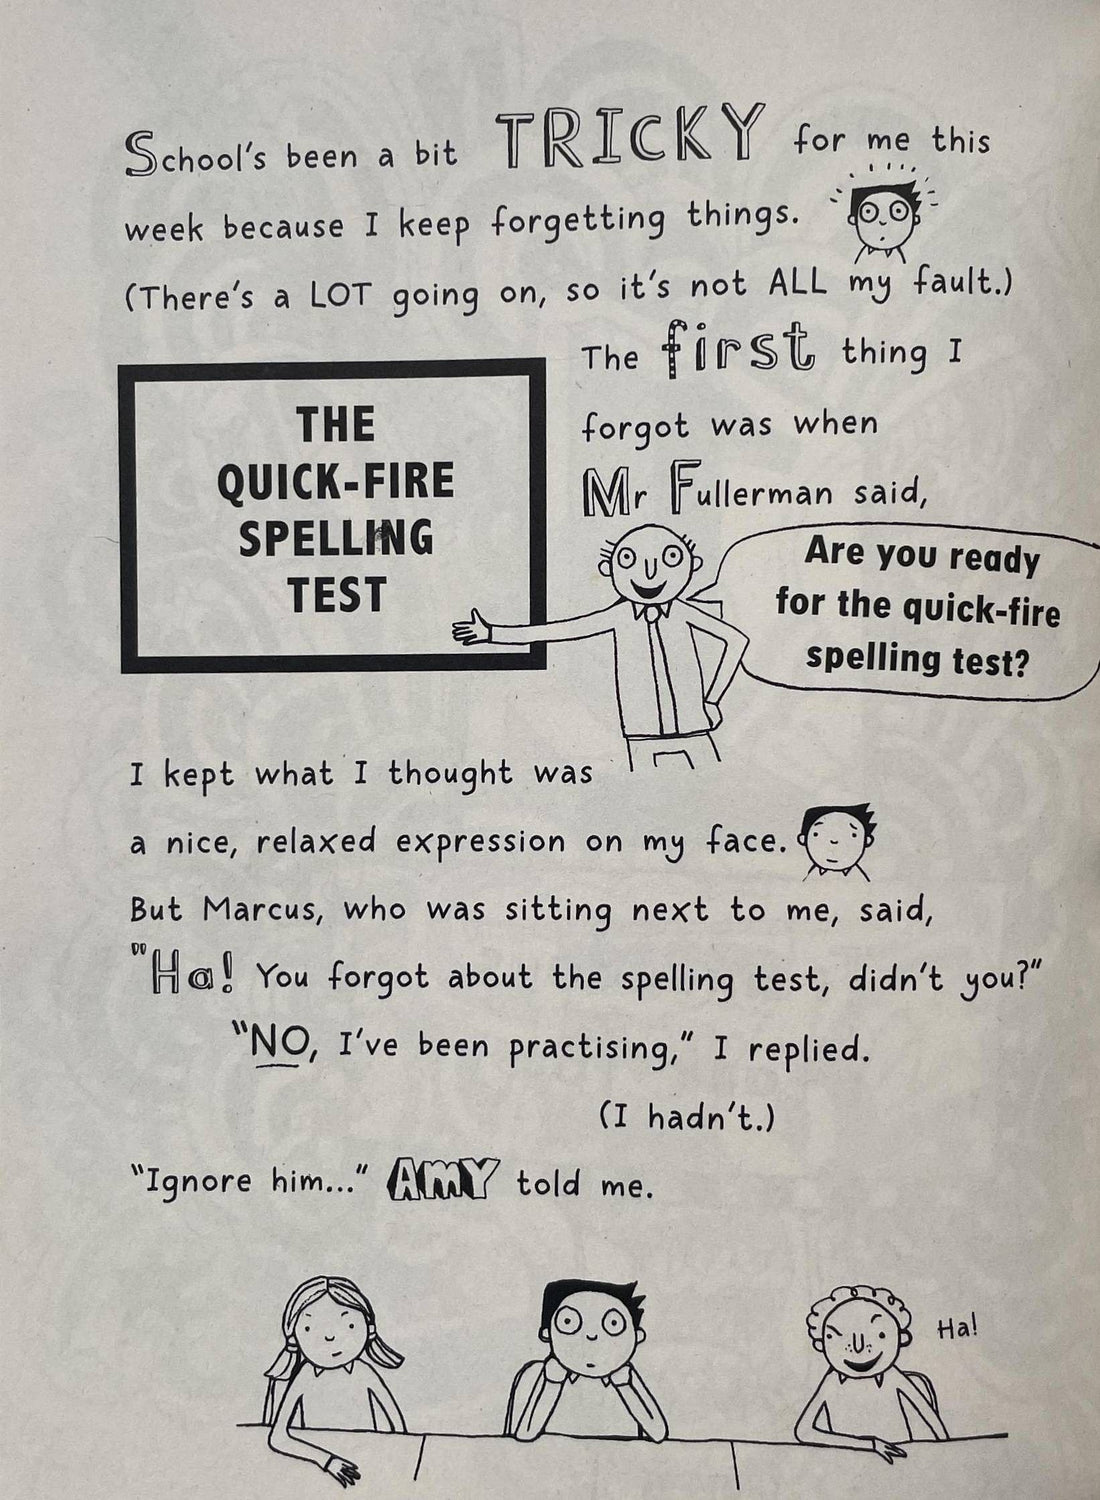 School's been a bit TRICKY for me this
week because I keep forgetting things.
(There's a LOT going on, so it's not ALL my fault.)
The first thing I
forgot was when
Mr Fullerman said,
THE
QUICK-FIRE
SPELLING
TEST
Are you ready
for the quick-fire
spelling test?
I kept what I thought was
a nice, relaxed expression on my face.
But Marcus, who was sitting next to me, said,
"Ha! You forgot about the spelling test, didn't you?"
"NO, I've been practising," I replied.
(I hadn't.)
"Ignore him..." AMY told me.
Ha!